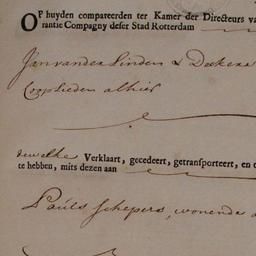 OP huyden compareerden ter Kamer der Directeurs va
rantie Compagny deser Stad Rotterdam
Jan vander Linden & Deckere
Cooplieden alhier
dewelke Verklaart, gecedeert, getransporteert, en o
te hebben, mits dezen aan
Pauls Schepers, wonende